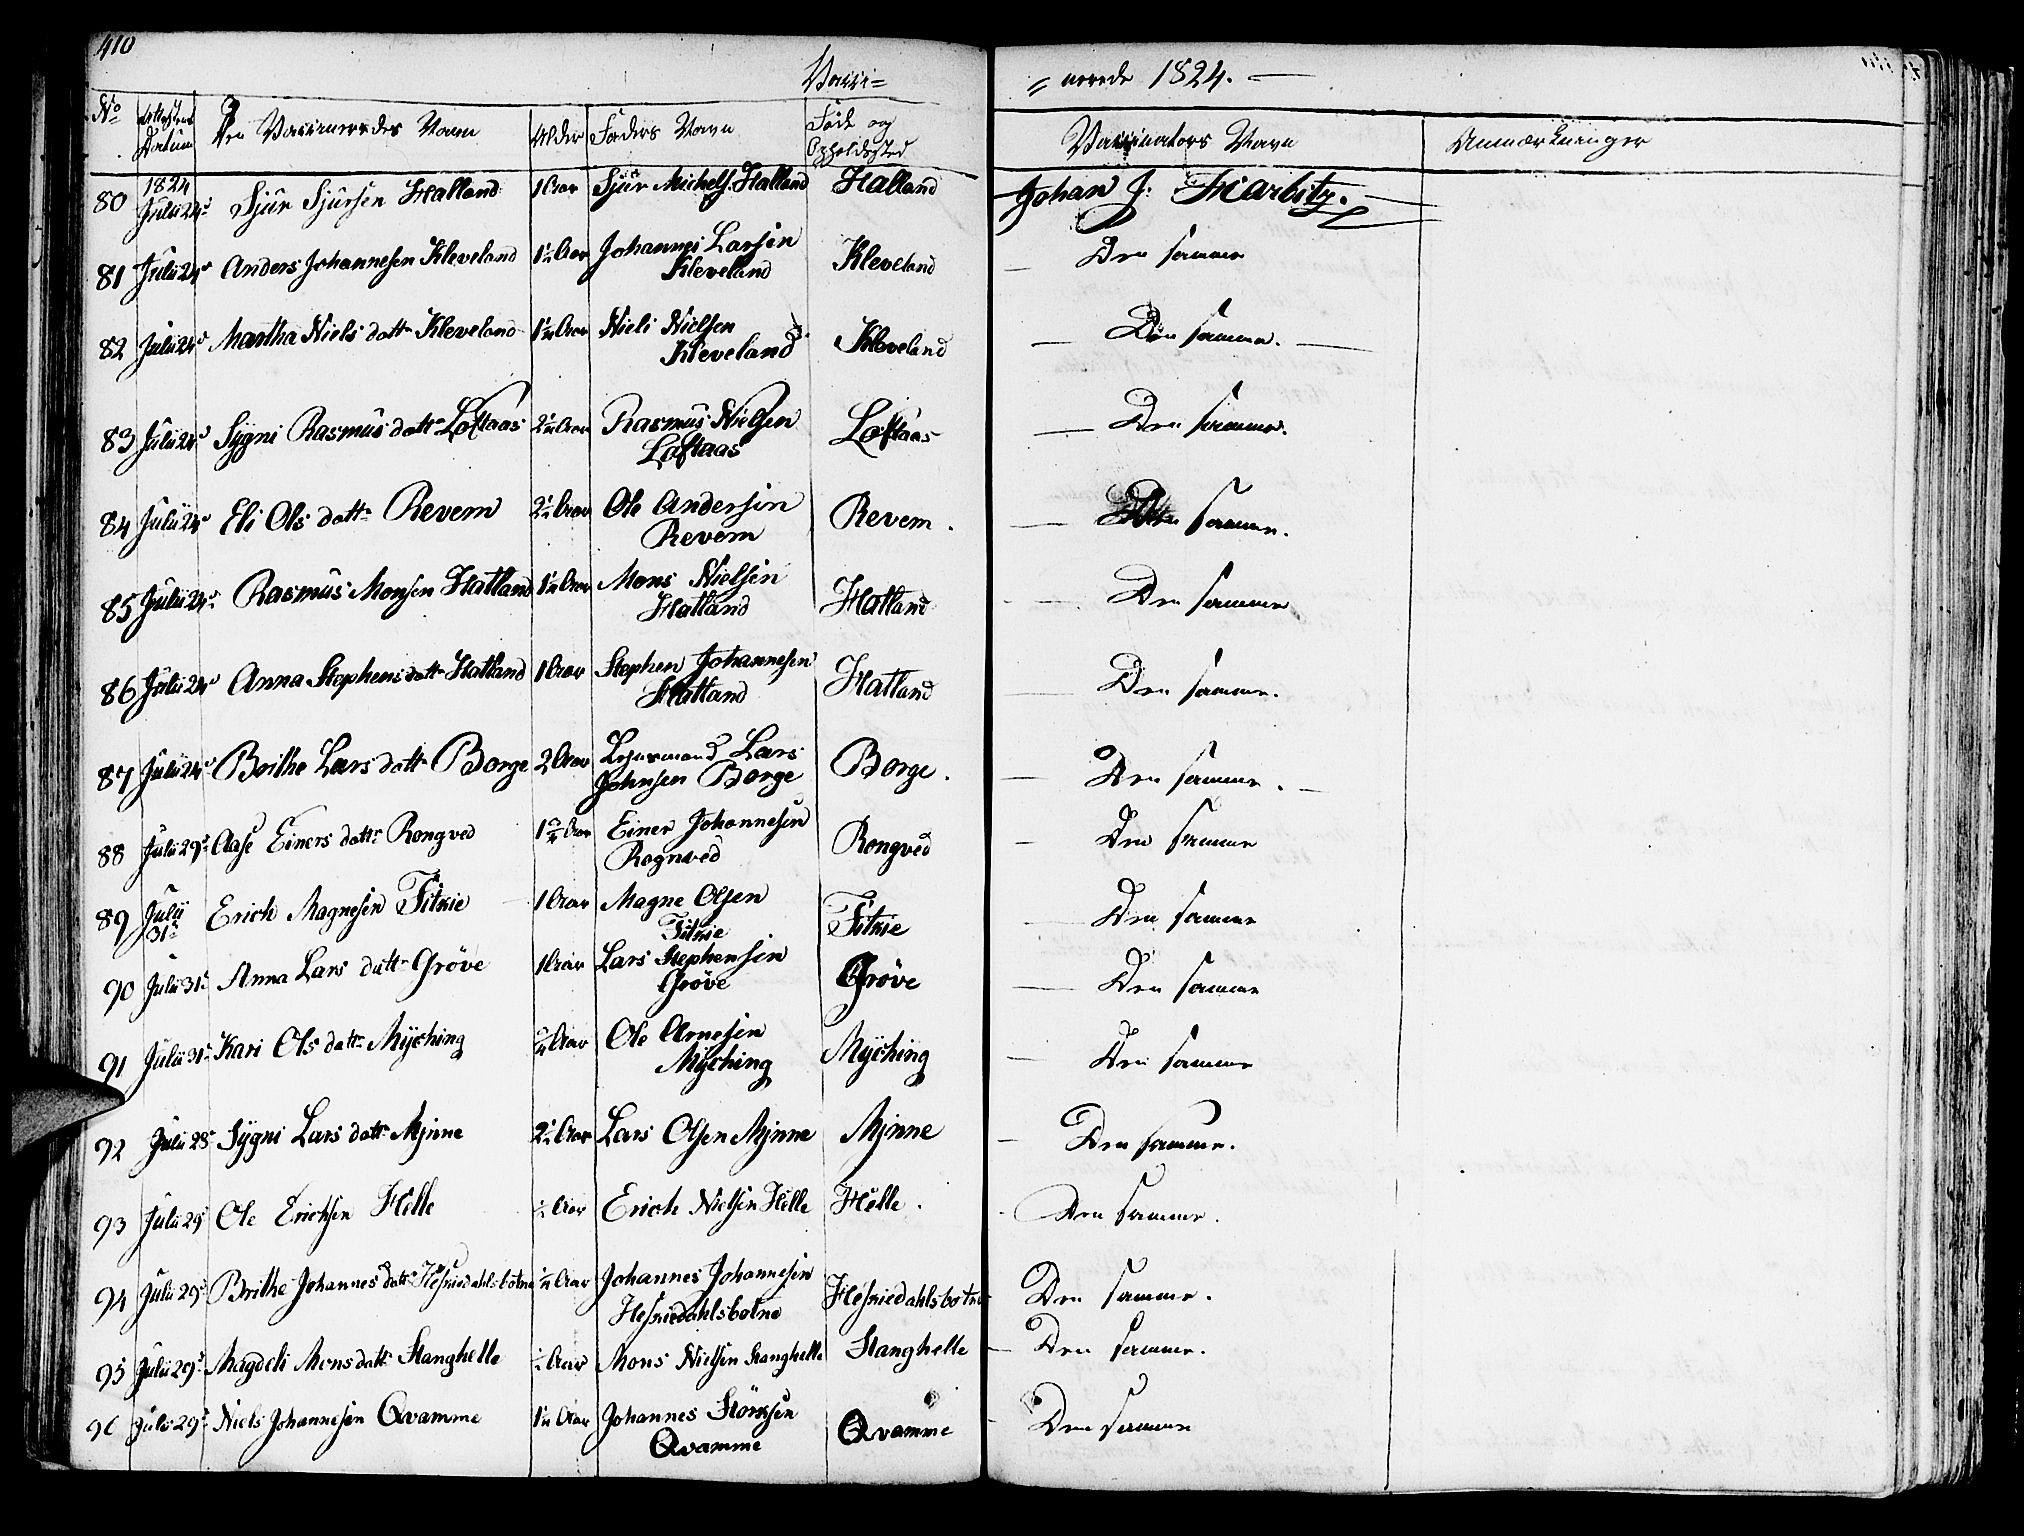 410
Vacci=
=nerede 1824.
No
Attestens Datum
Den Vaccineredes Navn
Alder
Faders Navn
Føde og Opholdssted
Vaccinators Navn
Anmærkninger
80 1824 Julii 24d Sjur Sjursen Hatland 1 Aar Sjur Michels. Hatland Hatland Johan J. Harbitz.
81 Julii 24d Anders Johannesen Kleveland 1½ Aar Johannes Larsen Kleveland Kleveland Den samme
82 Julii 24d Martha Niels datt Kleveland 1½ Aar Niels Nielsen Kleveland Kleveland Den samme.
83 Julii 24d Sygni Rasmus datt Loftaas 2½ Aar Rasmus Nielsen Loftaas Loftaas Den samme.
84 Julii 24d Eli Ols datt Revem 2½ Aar Ole Andersen Revem Revem. Den samme.
85 Julii 24d Rasmus Monsen Hatland 1½ Aar Mons Nielsen Hatland Hatland Den samme
86 Julii 24d Anna Stephens datt Hatland 1 Aar Stephen Johannesen Hatland Hatland Den samme.
87 Julii 24d Brithe Lars datt Borge 2 Aar Lehnsmand Lars Johnsen Borge Borge. Den samme.
88 Julii 29d Aase Einers datt Rongved 1¾ Aar Einer Johannesen Rognved Rongved Den samme
89 Julii 31d Erich Magnesen Fitxie 1 Aar Magne Olsen Fitxie Fitxie Den samme
90 Julii 31d Anna Lars datt Gröve 1 Aar Lars Stephensen Gröve Gröve Den samme
91 Julii 31d Kari Ols datt Myching ¾ Aar Ole Arnesen Myching Myching Den samme
92 Julii 28d Sygni Lars datt Mjnne 2½ Aar Lars Olsen Mjnne Mjnne Den samme.
93 Julii 29d Ole Erichsen Helle ½ Aar Erich Nielsen Helle Helle. Den samme.
94 Julii 29d Brithe Johannes datt Hesjedahlsbotne ½ Aar Johannes Johannesen Hesjedahlsbotne Hesjedahlsbotne Den samme.
95 Julii 29d Magdeli Mons datt Stanghelle ½ Aar Mons Nielsen Stanghelle Stanghelle Den samme.
96 Julii 29d Niels Johannesen Qvamme 1½ Aar Johannes Störksen Qvamme Qvamme Den samme